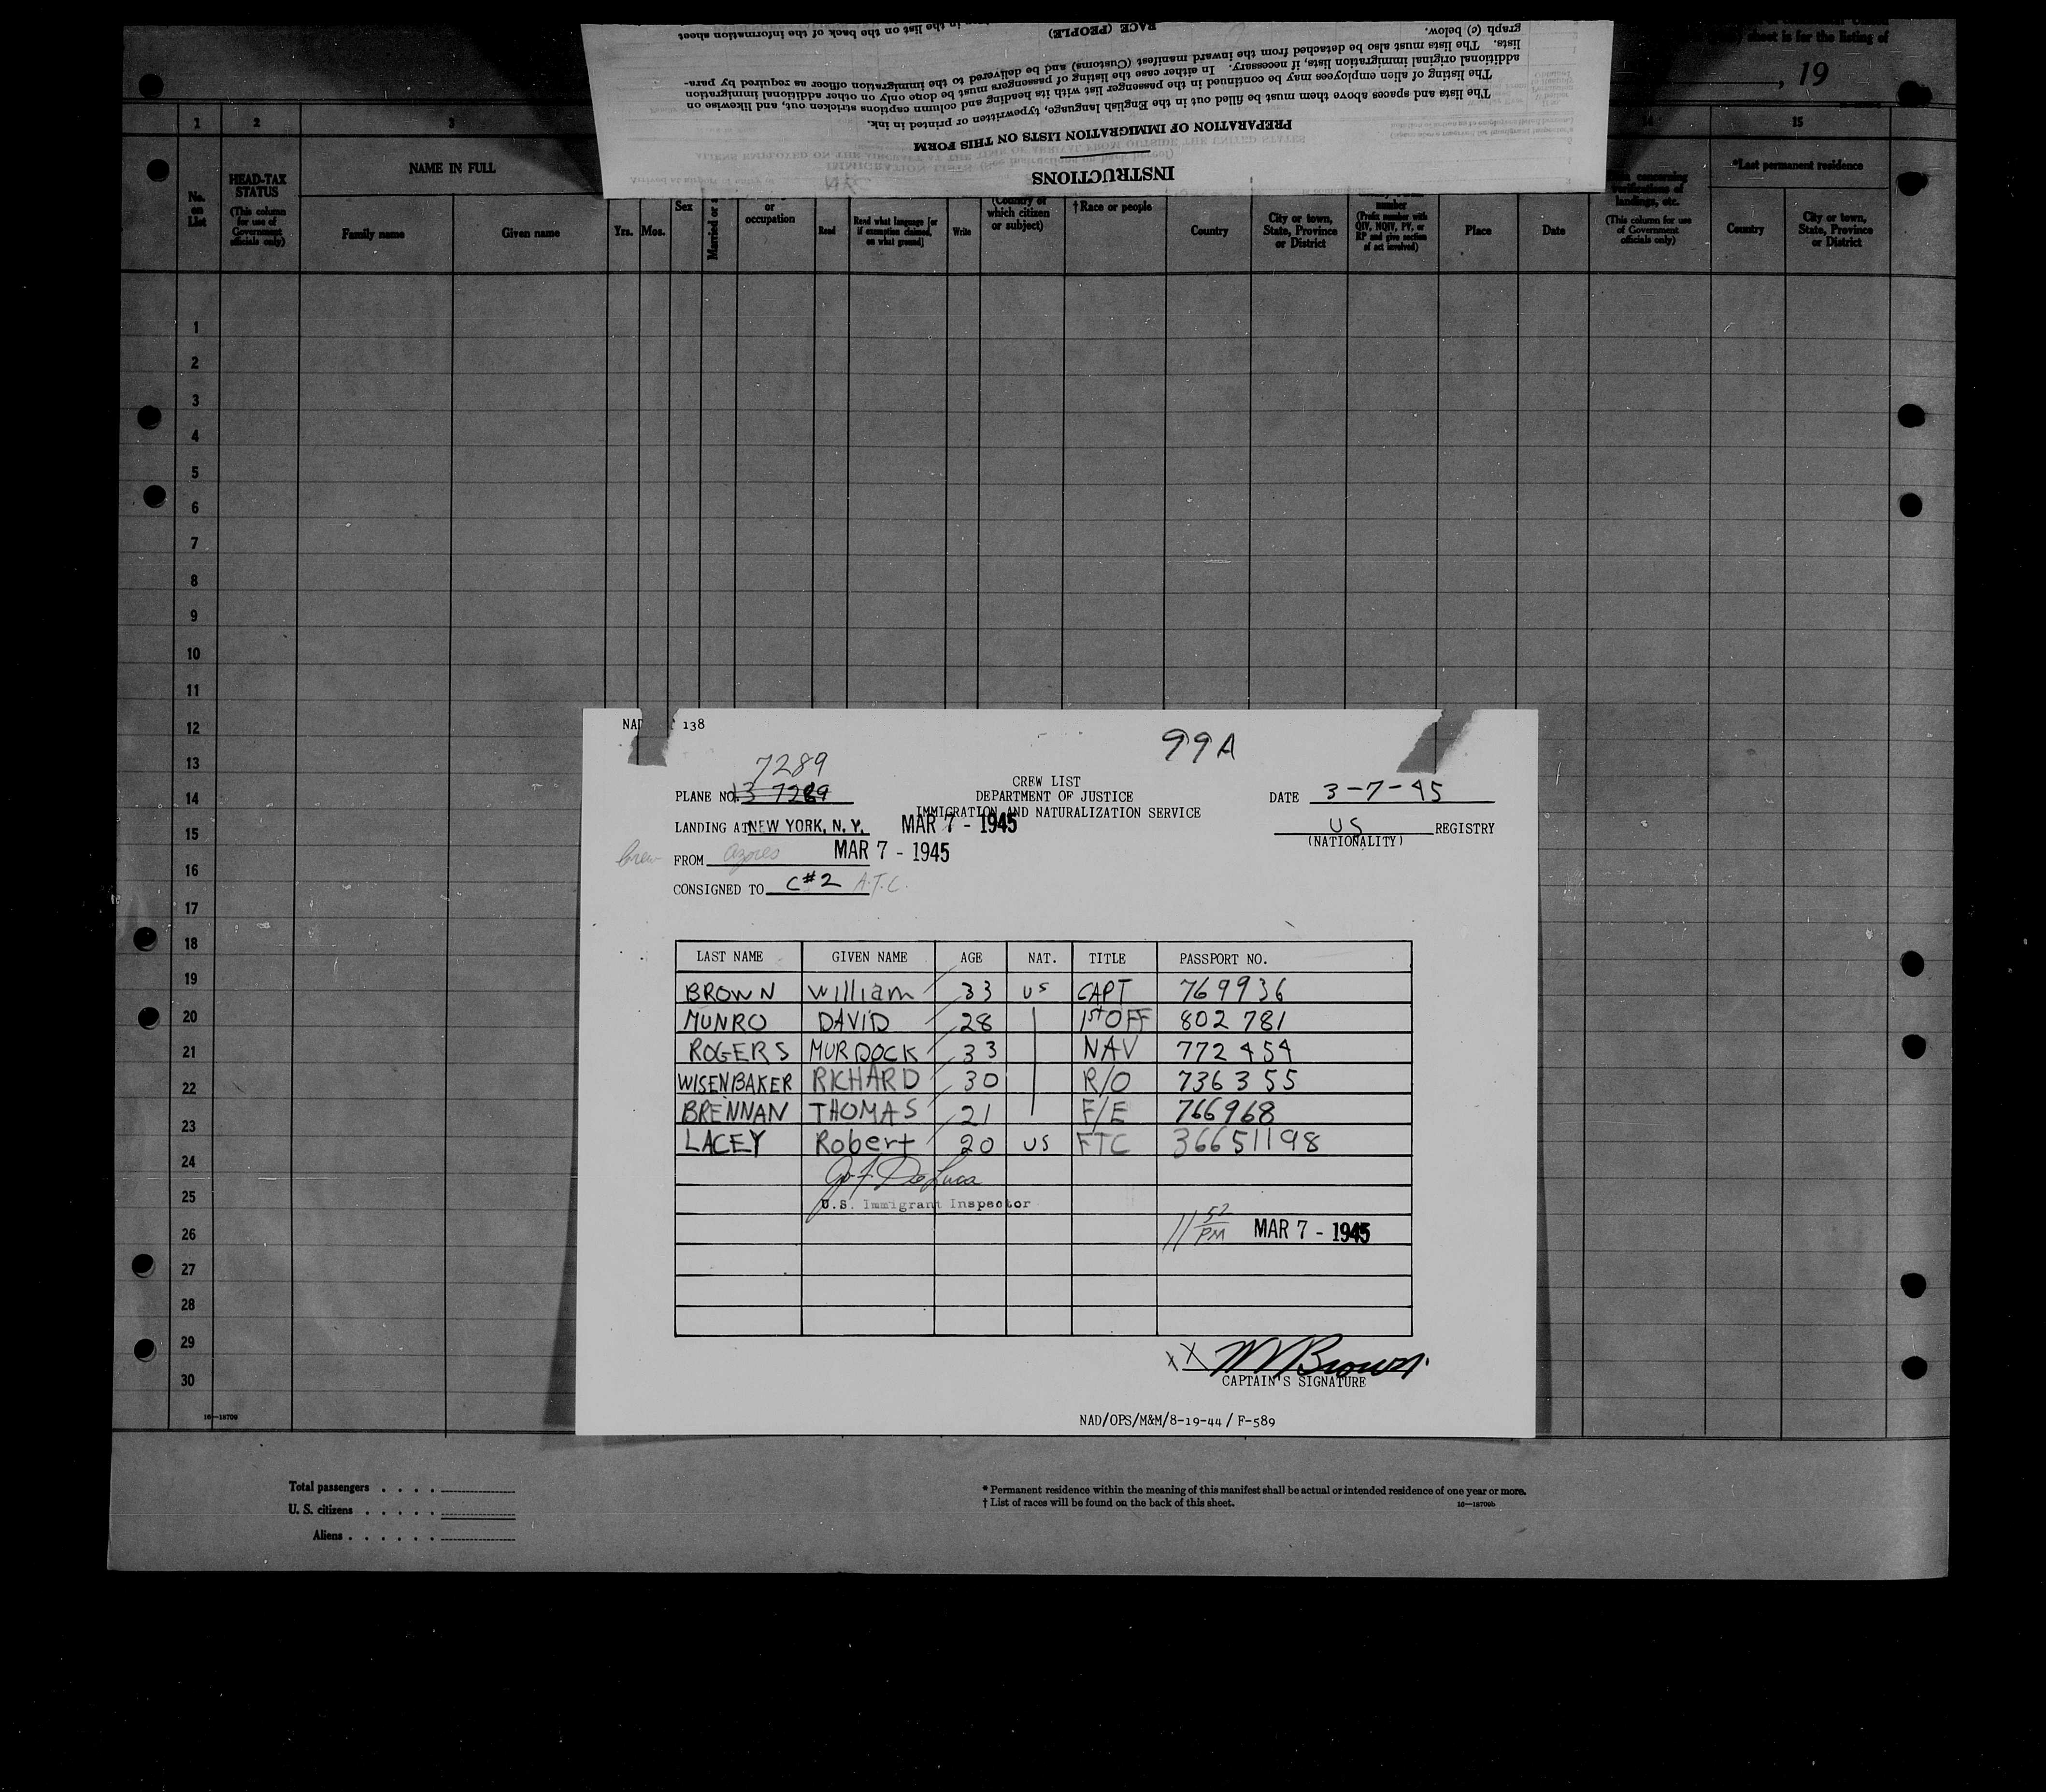 sheet is for the listing of
, 19
INSTRUCTIONS
PREPARATION OF IMMIGRATION LISTS ON THIS FORM
The lists and spaces above them must be filled out in the English language, typewritten or printed in ink.
The listing of alien employees may be continued in the passenger list with its heading and column captions stricken out, and likewise on
additional original immigration lists, if necessary. In either case the listing of passengers must be done only on other additional immigration
lists. The lists must also be detached from the inward manifest (Customs) and be delivered to the immigration officer as required by para-
graph (c) below.
RACE (PEOPLE)
in the list on the back of the information sheet
1 2 3 14 15
No. on List
HEAD-TAX STATUS
(This column for use of Government officials only)
NAME IN FULL
Family name Given name
Yrs. Mos.
Sex
Married or s
or occupation
Read
Read what language [or if exemption claimed, on what ground]
Write
(Country of which citizen or subject)
†Race or people
Country
City or town, State, Province or District
number
(Prefix number with QIV, NQIV, PV, or RP and give section of act involved)
Place
Date
concerning verifications of landings, etc.
(This column for use of Government officials only)
*Last permanent residence
Country
City or town, State, Province or District
1
2
3
4
5
6
7
8
9
10
11
12
13
14
15
16
17
18
19
20
21
22
23
24
25
26
27
28
29
30
16—18709
NAD 138
99A
7289
CREW LIST
PLANE NO. 13 7289 DEPARTMENT OF JUSTICE DATE 3-7-45
IMMIGRATION AND NATURALIZATION SERVICE
LANDING AT NEW YORK, N. Y. MAR 7 - 1945 US REGISTRY
(NATIONALITY)
Crew FROM Azores MAR 7 - 1945
CONSIGNED TO C#2 A.T.C.
LAST NAME GIVEN NAME AGE NAT. TITLE PASSPORT NO.
BROWN William 33 US CAPT 769936
MUNRO DAVID 28 1st OFF 802 781
ROGERS MURDOCK 33 NAV 772454
WISENBAKER RICHARD 30 R/O 736355
BRENNAN THOMAS 21 F/E 766968
LACEY Robert 20 US FTC 36651198
U.S. Immigrant Inspector
11 52 PM MAR 7 - 1945
XX W Brown.
CAPTAIN'S SIGNATURE
NAD/OPS/M&M/8-19-44/ F-589
Total passengers . . . .
U. S. citizens . . . . .
Aliens . . . . . .
* Permanent residence within the meaning of this manifest shall be actual or intended residence of one year or more.
† List of races will be found on the back of this sheet.
16—18709b